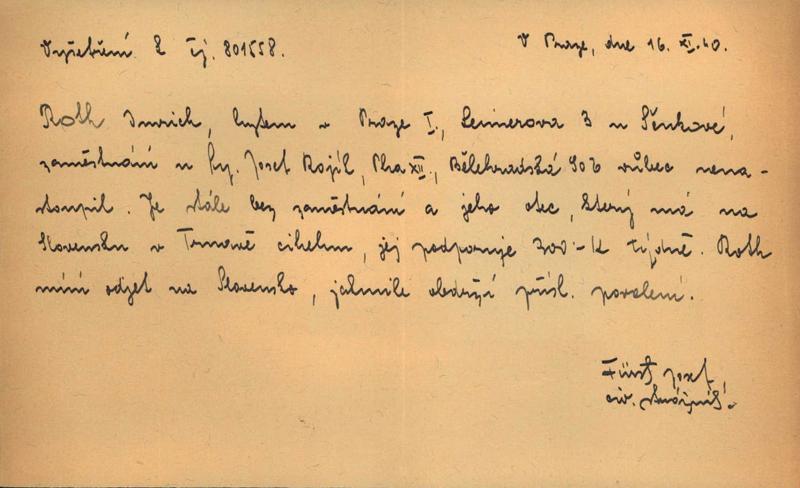 Vyšetření k čj. 801558.
V Praze, dne 16. XI. 40.
Roth Imrich, bytem v Praze I., 3 u Šenkové,
zaměstnání u fy. Josef Rojík, Pha XII., Bělehradská vůbec nena-
stoupil. Je stále bez zaměstnání a jeho otec, který má na
Slovensku v Trnavě cihelnu, jej podporuje 300·-K týdně. Roth
míní odjet na Slovensko, jakmile obdrží přísl. povolení.
Fürst Josef
civ. strážník.